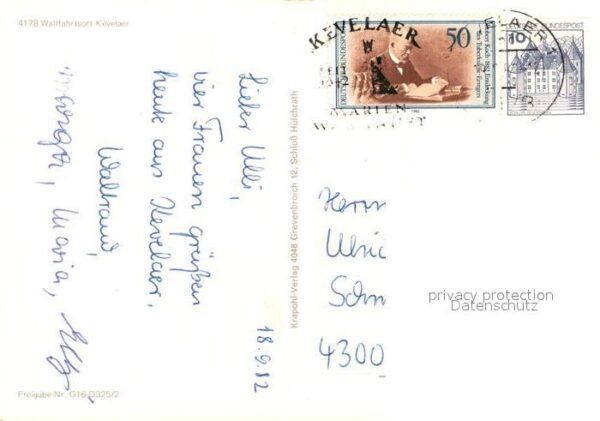 4178 Wallfahrtsort Kevelaer
18.9.82
Lieber Ulli,
vier Frauen grüßen
heute aus Kevelaer.
Waltraud,
Maria, Elly
Freigabe-Nr. G16-D325/2
Krapohl-Verlag 4048 Grevenbroich 12, Schloß Hülchrath
KEVELAER
MARIEN
50
Robert Koch 1882 Entdeckung
des Tuberkulose-Erregers
DEUTSCHE BUNDESPOST
10
DEUTSCHE BUNDESPOST
Herrn
Ulric
Schn
4300
privacy protection
Datenschutz